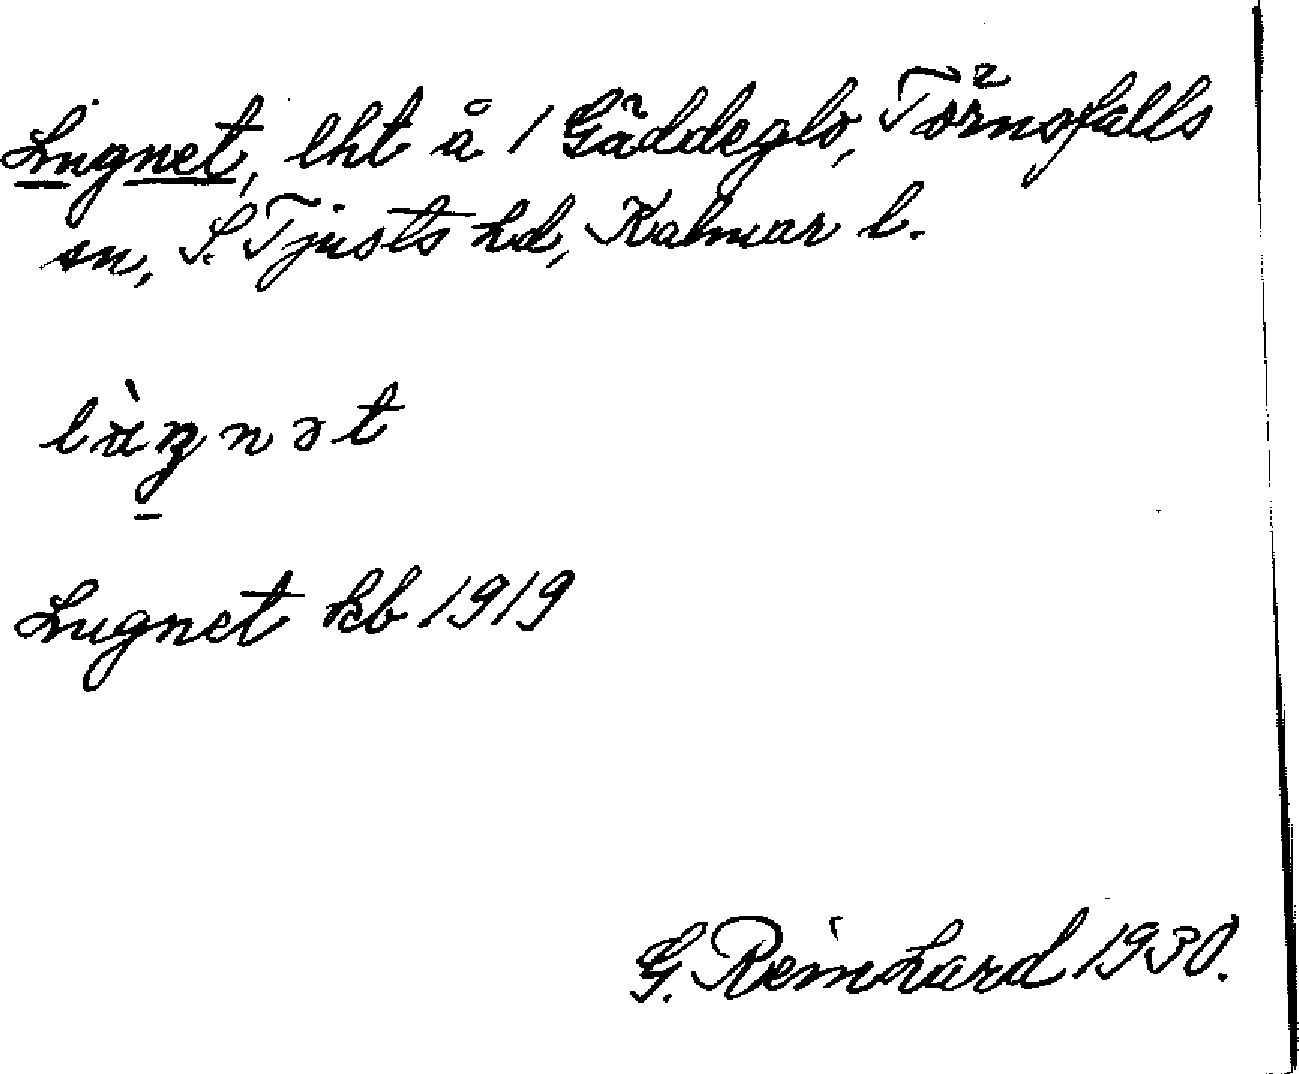 Lugnet, lht å 1 Gäddeglo, Törnsfalls
sn, S. Tjusts hd, Kalmar l.
lùŋnət
Lugnet kb 1919
G. Reinhard 1930.